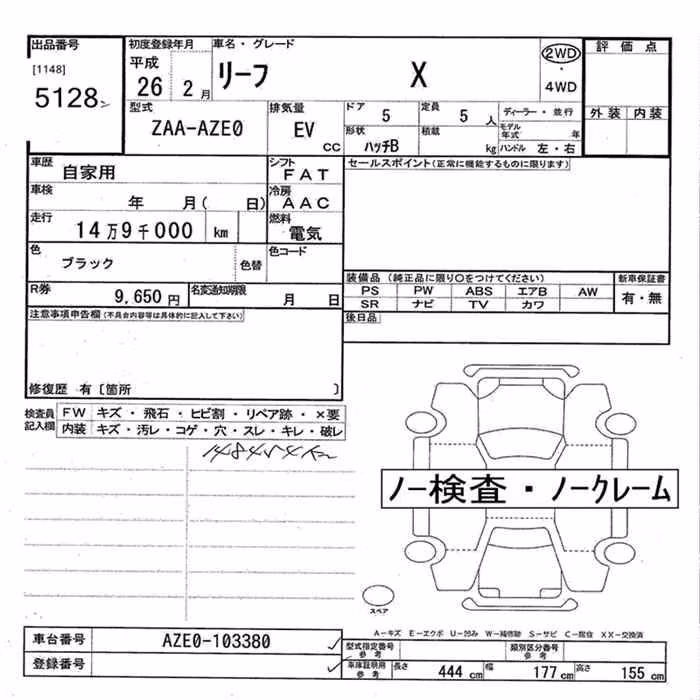 出品番号
[1148]
5128
初度登録年月
平成
26 2月
車名・グレード
リーフ X
2WD
・
4WD
評価点
外装 内装
型式
ZAA-AZE0
排気量
EV
CC
ドア
5
定員
5 人
形状
ハッチB
積載
kg
ディーラー・並行
モデル年式 年
ハンドル 左・右
車歴
自家用
シフト
FAT
車検
年 月( 日)
冷房
AAC
走行
14万9千000 km
燃料
電気
色
ブラック
色替
色コード
R券
9,650円
名変通知期限
月 日
セールスポイント(正常に機能するものに限ります)
装備品 (純正品に限り○をつけてください)
新車保証書
PS PW ABS エアB AW
有・無
SR ナビ TV カワ
後日品
注意事項申告欄(不具合内容等は具体的に記入して下さい)
修復歴 有〔箇所 〕
検査員
記入欄
FW キズ・飛石・ヒビ割・リペア跡・×要
内装 キズ・汚レ・コゲ・穴・スレ・キレ・破レ
148454km
ノー検査・ノークレーム
スペア
A－キズ E－エクボ U－凹み W－補修跡 S－サビ C－腐食 XX－交換済
車台番号
AZE0-103380
登録番号
型式指定番号
参考
類別区分番号
参考
車庫証明用
参考
長さ 444cm 幅 177cm 高さ 155cm